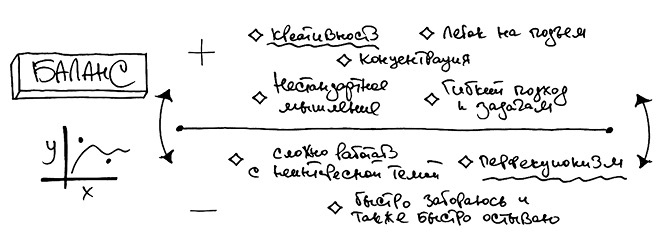 +
креативность
Легок на подъем
концентрация
БАЛАНС
Нестандартное
мышление
Гибкий подход
к задачам
y
x
сложно работать
с неинтересной темой
перфекционизм
—
быстро загораюсь и
также быстро остываю